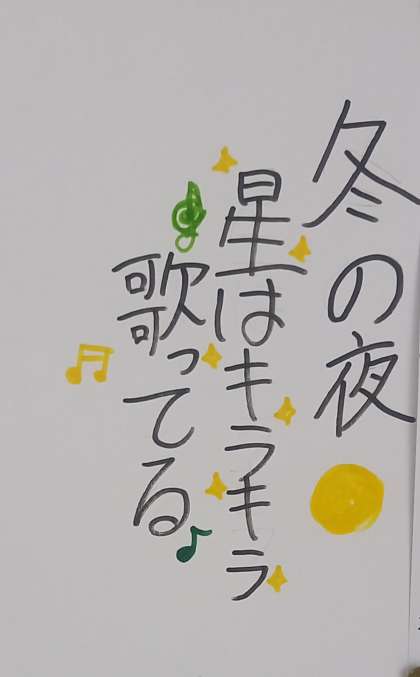 冬の夜
星はキラキラ
歌ってる